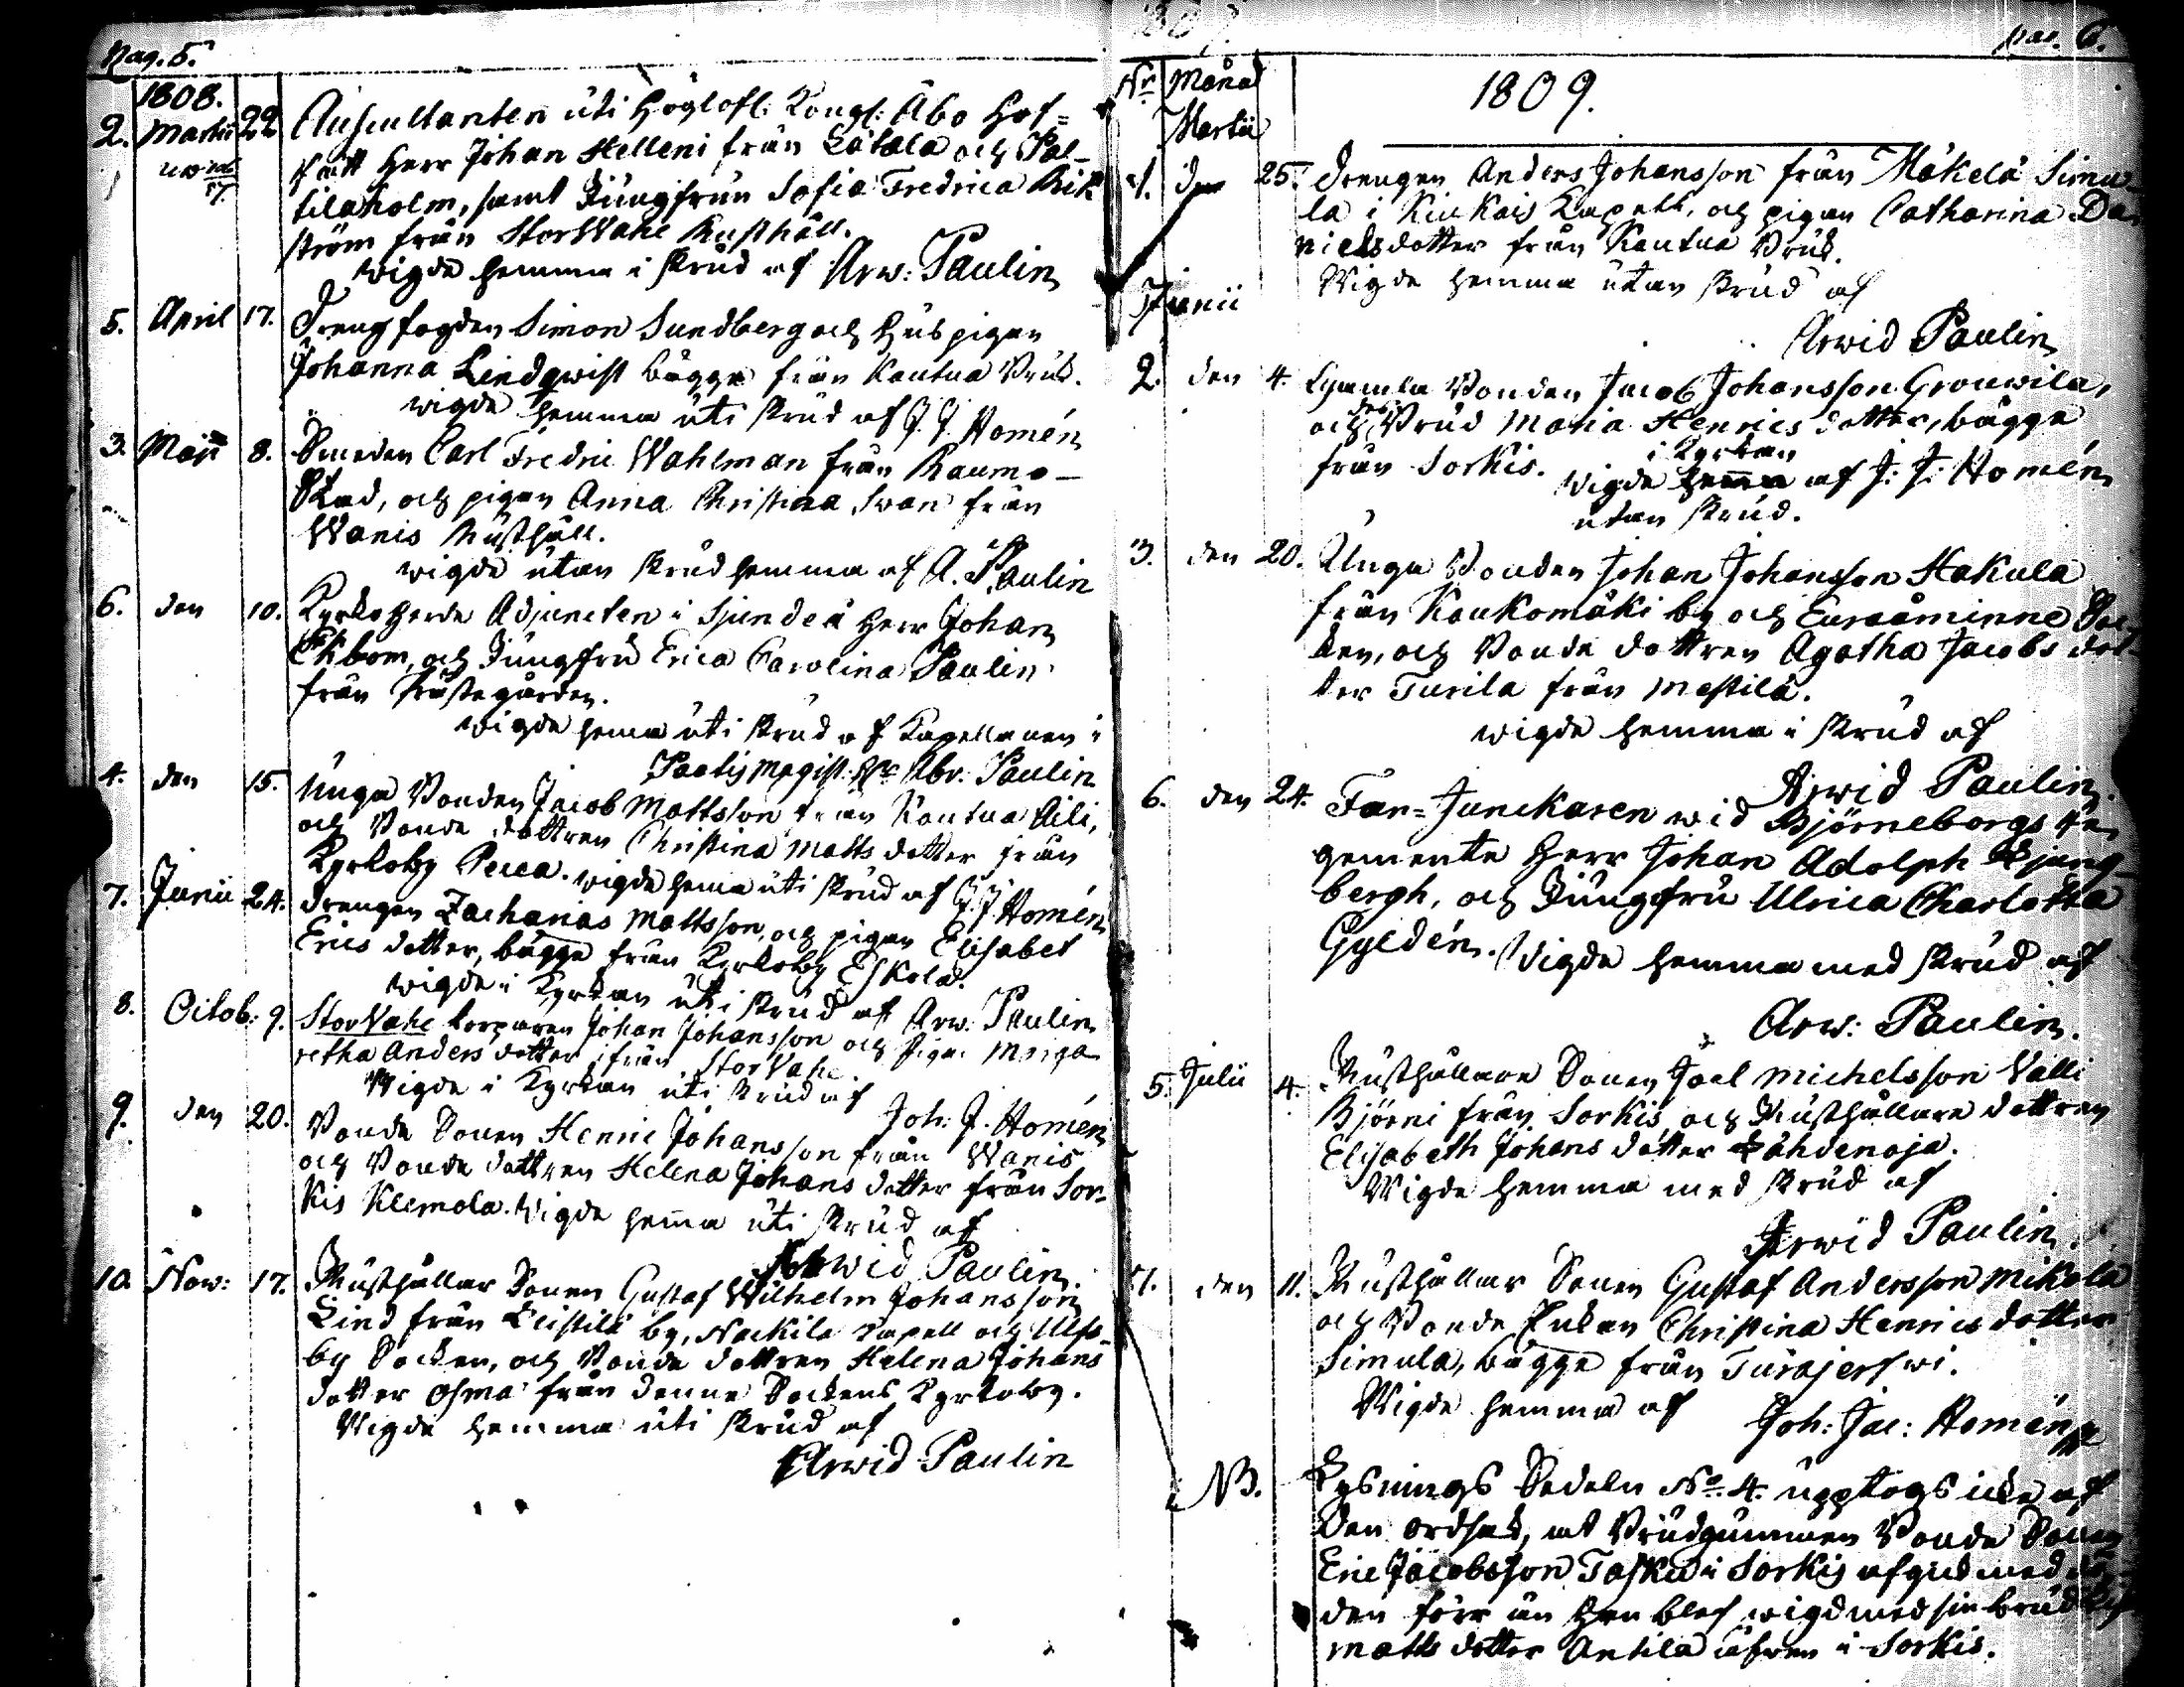 Pag. 5.
1808.
2. Martii 22 Auscultanten uti Höglofl: Kongl: Åbo Hof=
rätt Herr Johan Helleni från Lätala och Pal-
tilaholm, samt Jungfrun Sofia Fredrica Rik
ström från StorWahe Rusthåll.
wigde hemma i skrud af Arw: Paulin
5. April 17. Drengfogden Simon Sundberg och Huspigan
Johanna Lindqwist bägge från Kautua Bruk.
wigde hemma uti skrud af J. J. Homén
3. Maji 8. Smeden Carl Fredric Wahlman från Raumo-
Stad, och pigan Anna Christina Swan från
Wanis Rusthåll.
wigde utan skrud hemma af A. Paulin
6. den 10. Kyrkoherde Adjuncten i Sjundeå Herr Johan
Ekbom, och Jungfru Erica Carolina Paulin
från Prästegården.
wigde hema uti skrud af Kapellanen i
Magist: Abr: Paulin
4. den 15. Unga Bonden Jacob Mattsson från Kautua Äili,
och Bonde dottren Christina Matts dotter från
Kyrkoby Pecca. wigde hema uti skrud af J. J Homén
7. Junii 24. Drengen Zacharias Mattsson, och pigan Elisabet
Erics dotter, bägge från Kyrkoby Eskola.
wigde i Kyrkan uti skrud af Arw. Paulin
8. Octob: 9. StorVahe torparen Johan Johansson och Pigan Marga
retha Anders dotter ifrån StorVahe
Wigde i Kyrkan uti skrud af
Joh: J. Homén
9. den 20. Bonde Sonen Henric Johansson från Wanis
och Bonde dottren Helena Johans dotter från Sor-
kis Klemola. Wigde hema uti skrud af
Arwid Paulin.
10. Now: 17. Rusthållar Sonen Gustaf Wilhelm Johansson
Lind från Leistilä by, Nackila Capell och Ulfs-
by Socken, och Bonde dottren Helena Johans
dotter Osma från denne Sockens Kyrkoby.
Wigde hemma uti skrud af
Arwid Paulin
pag. 6.
Nr Månad
1809.
Martii
1. den 25. Drengen Anders Johansson från Mäkelä Simu-
la i Kiukais Kapell, och pigan Catharina Da-
niels dotter från Kautua Bruk.
Wigde hemma utan skrud af
Arwid Paulin
Junii
2. den 4. Gamla Bonden Jacob Johansson Grouwila,
och des Brud Maria Henrics dotter, bägge
från Sorkis. i Kyrkan
Wigde hemma af J: J: Homén
utan skrud.
3. den 20. Unga Bonden Johan Johansson Hakula
från Kaukomäki by och Euraåminne Soc-
ken, och Bonde dottren Agatha Jacobs dot-
ter Turila från Mestilä.
wigde hemma i skrud af
Arwid Paulin.
6. den 24. Fan=Junckaren wid Björneborgs Re-
gemente Herr Johan Adolph Ljung-
bergh, och Jungfru Ulrica Charlotta
Gyldén. Wigde hemma med skrud af
Arw: Paulin.
5. Julii 4. Rusthållare Sonen Joel Michelsson Välli
Björni från Sorkis, och Rusthållare dottren
Elisabeth Johans dotter Lähdenoja.
Wigde hemma med skrud af
Arwid Paulin.
den 11. Rusthållar Sonen Gustaf Andersson Mikola
och Bonde Enkan Christina Henrics dotter
Simula, bägge från Turajerfwi.
Wigde hemma af
Joh: Jac: Homén
NB. Lysnings Sedeln No. 4. upptogs icke af
den ordsak, at Brudgummen Bonde Sonen
Eric Jacobsson Tasku i Sorkis afgick med dö
den förr än han blef wigd med sin brud
Matts dotter Antila äfwen i Sorkis.